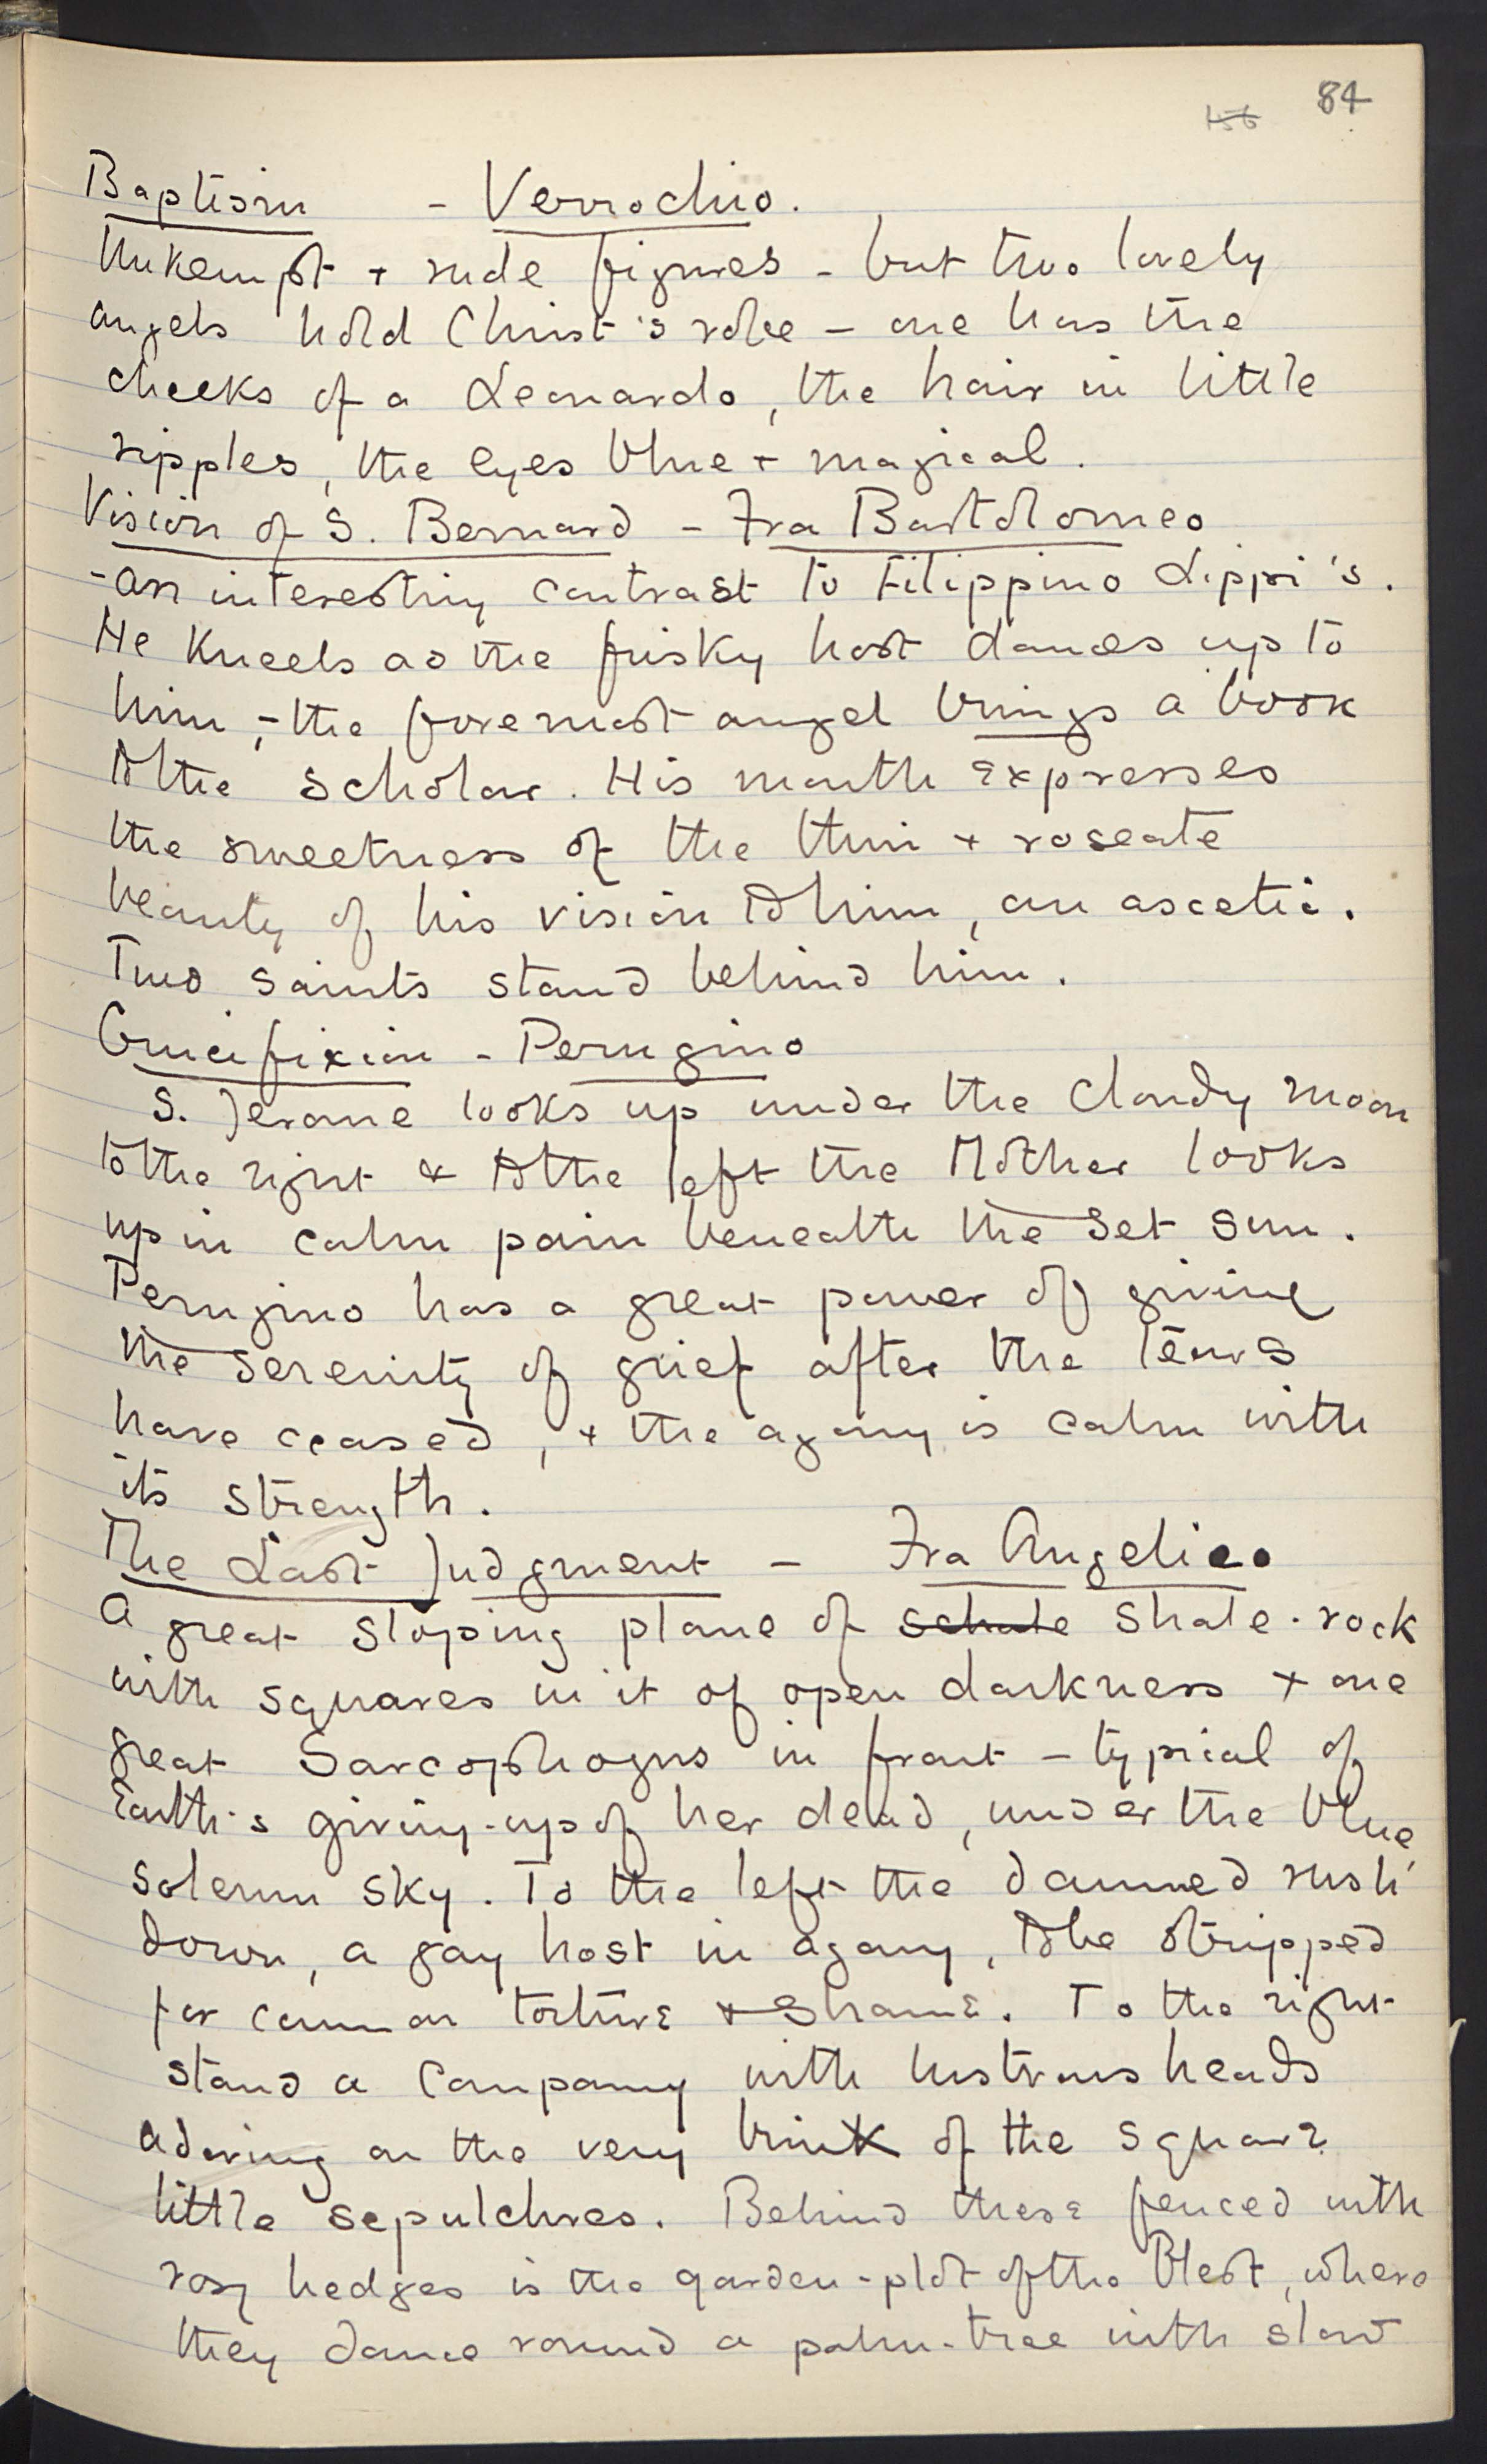 84
156
Baptism - Verrochio.
Unkempt + rude figures - but two lovely
angels hold Christ's robe - one has the
cheeks of a Leonardo, the hair in little
ripples, the eyes blue + magical.
Vision of S. Bernard - Fra Bartolomeo
- an interesting contrast to Filippino Lippi's.
He kneels as the frisky host dances up to
him, - the foremost angel brings a book
to the scholar. His mouth expresses
the sweetness of the thin + roseate
beauty of his vision to him, an ascetic.
Two saints stand behind him.
Crucifixion - Perugino
S. Jerome looks up under the cloudy moon
to the right & to the left the Mother looks
up in calm pain beneath the set sun.
Perugino has a great power of giving
the serenity of grief after the tears
have ceased, + the agony is calm with
its strength.
The Last Judgment - Fra Angelico
A great sloping plane of schale shale-rock
with squares in it of open darkness + one
great Sarcophogus in front - typical of
Earth's giving-up of her dead, under the blue,
solemn sky. To the left the damned rush
down, a gay host in agony, to be stripped
for common torture + shame. To the right
stand a company with lustrous heads
adoring on the very brink of the square
little sepulchres. Behind these fenced with
rosy hedges is the garden-plot of the Blest, where
they dance round a palm-tree with slow